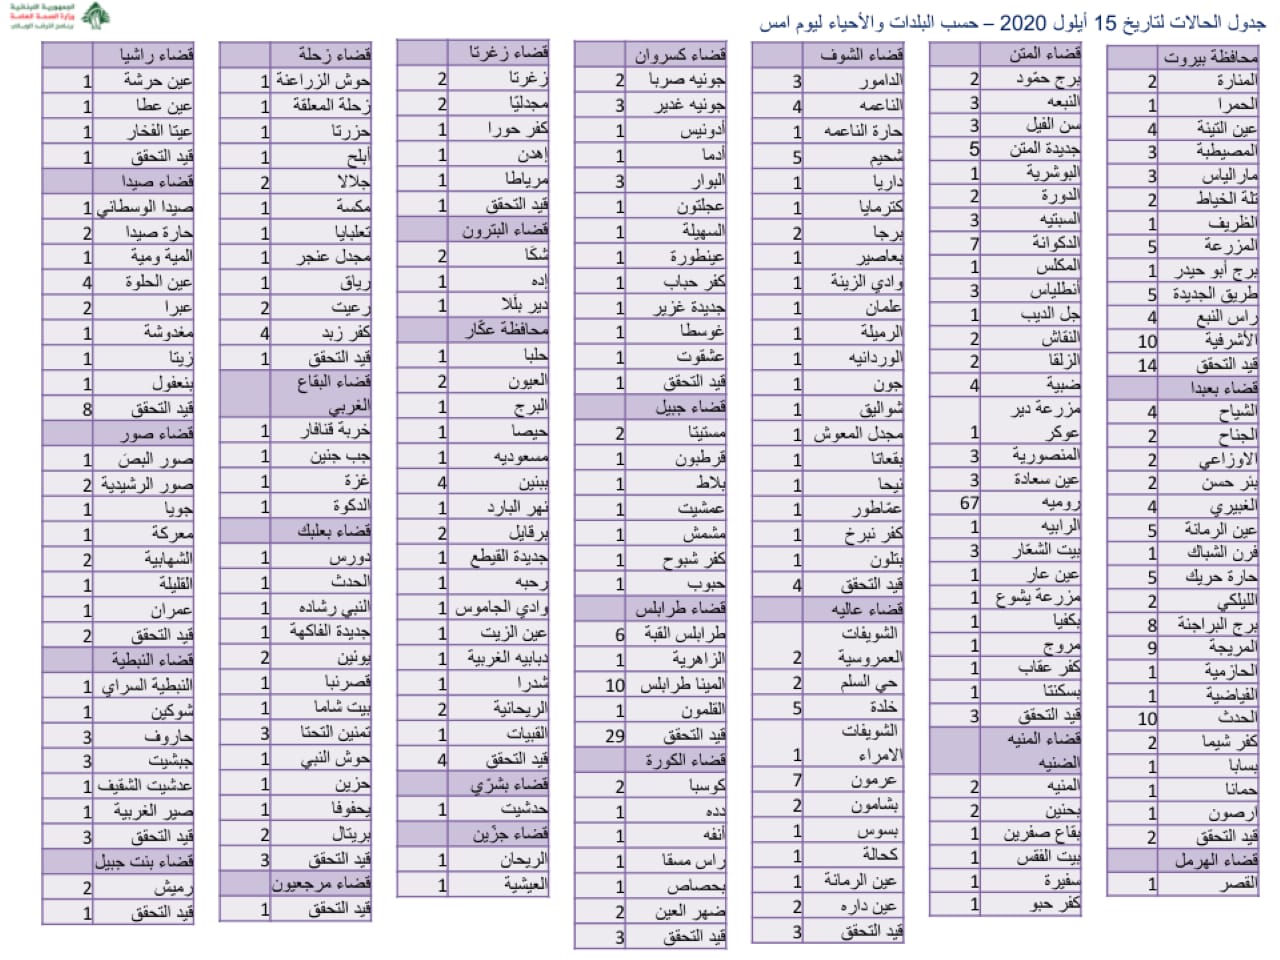 جدول الحالات لتاريخ 15 أيلول 2020 – حسب البلدات والأحياء ليوم امس
الجمهورية اللبنانية
وزارة الصحة العامة
برنامج الترصد الوبائي
محافظة بيروت
المنارة 2
الحمرا 1
عين التينة 4
المصيطبة 3
مار الياس 3
تلة الخياط 2
الظريف 1
المزرعة 5
برج أبو حيدر 1
طريق الجديدة 5
راس النبع 4
الأشرفية 10
قيد التحقق 14
قضاء بعبدا
الشياح 4
الجناح 2
الاوزاعي 2
بئر حسن 2
الغبيري 4
عين الرمانة 5
فرن الشباك 1
حارة حريك 5
الليلكي 2
برج البراجنة 8
المريجة 9
الحازمية 1
الفياضية 1
الحدث 10
كفر شيما 2
بسابا 1
حمانا 1
ارصون 1
قيد التحقق 2
قضاء الهرمل
القصر 1
قضاء المتن
برج حمّود 2
النبعه 3
سن الفيل 3
جديدة المتن 5
البوشرية 1
الدورة 2
السبتيه 3
الدكوانة 7
المكلس 1
أنطلياس 3
جل الديب 1
النقاش 2
الزلقا 2
ضبية 4
مزرعة دير
عوكر 1
المنصورية 3
عين سعادة 3
روميه 67
الرابيه 1
بيت الشعّار 3
عين عار 1
مزرعة يشوع 1
بكفيا 1
مروج 1
كفر عقاب 1
بسكنتا 1
قيد التحقق 3
قضاء المنيه
الضنيه
المنيه 2
بحنين 2
بقاع صفرين 1
بيت الفقس 1
سفيرة 1
كفر حبو 1
قضاء الشوف
الدامور 3
الناعمه 4
حارة الناعمه 1
شحيم 5
داريا 1
كترمايا 1
برجا 2
بعاصير 1
وادي الزينة 1
علمان 1
الرميلة 1
الوردانيه 1
جون 1
شواليق 1
مجدل المعوش 1
بقعاتا 1
نيحا 1
عمّاطور 1
كفر نبرخ 1
بتلون 1
قيد التحقق 4
قضاء عاليه
الشويفات
العمروسية 2
حي السلم 2
خلدة 5
الشويفات
الامراء 1
عرمون 7
بشامون 2
بسوس 1
كحالة 1
عين الرمانة 1
عين داره 2
قيد التحقق 3
قضاء كسروان
جونيه صربا 2
جونيه غدير 3
أدونيس 1
أدما 1
البوار 3
عجلتون 1
السهيلة 1
عينطورة 1
كفر حباب 1
جديدة غزير 1
غوسطا 1
عشقوت 1
قيد التحقق 1
قضاء جبيل
مستيتا 2
قرطبون 1
بلاط 1
عمشيت 1
مشمش 1
كفر شبوح 1
حبوب 1
قضاء طرابلس
طرابلس القبة 6
الزاهرية 1
المينا طرابلس 10
القلمون 1
قيد التحقق 29
قضاء الكورة
كوسبا 2
دده 1
أنفه 1
راس مسقا 1
بحصاص 1
ضهر العين 2
قيد التحقق 3
قضاء زغرتا
زغرتا 2
مجدليّا 2
كفر حورا 1
إهدن 1
مرياطا 1
قيد التحقق 1
قضاء البترون
شكّا 2
إده 1
دير بلّلا 1
محافظة عكّار
حلبا 1
العيون 2
البرج 1
حيصا 1
مسعوديه 1
ببنين 4
نهر البارد 1
برقايل 2
جديدة القيطع 1
رحبه 1
وادي الجاموس 1
عين الزيت 1
دبابيه الغربية 1
شدرا 1
الريحانية 2
القبيات 1
قيد التحقق 4
قضاء بشرّي
حدشيت 1
قضاء جزّين
الريحان 1
العيشية 1
قضاء زحلة
حوش الزراعنة 1
زحلة المعلقة 1
حزرتا 1
أبلح 1
جلالا 2
مكسة 1
تعلبايا 1
مجدل عنجر 1
رياق 1
رعيت 2
كفر زبد 4
قيد التحقق 1
قضاء البقاع
الغربي
خربة قنافار 1
جب جنين 1
غزة 1
الدكوة 1
قضاء بعلبك
دورس 1
الحدث 1
النبي رشاده 1
جديدة الفاكهة 1
يونين 2
قصرنبا 1
بيت شاما 1
تمنين التحتا 3
حوش النبي 1
حزين 1
يحفوفا 1
بريتال 2
قيد التحقق 3
قضاء مرجعيون
قيد التحقق 1
قضاء راشيا
عين حرشة 1
عين عطا 1
عيتا الفخار 1
قيد التحقق 1
قضاء صيدا
صيدا الوسطاني 1
حارة صيدا 2
المية ومية 1
عين الحلوة 4
عبرا 2
مغدوشة 1
زيتا 1
بنعفول 1
قيد التحقق 8
قضاء صور
صور البصّ 1
صور الرشيدية 2
جويا 1
معركة 1
الشهابية 2
القليلة 1
عمران 1
قيد التحقق 2
قضاء النبطية
النبطية السراي 1
شوكين 1
حاروف 3
جبشيت 3
عدشيت الشقيف 1
صير الغربية 1
قيد التحقق 3
قضاء بنت جبيل
رميش 2
قيد التحقق 1